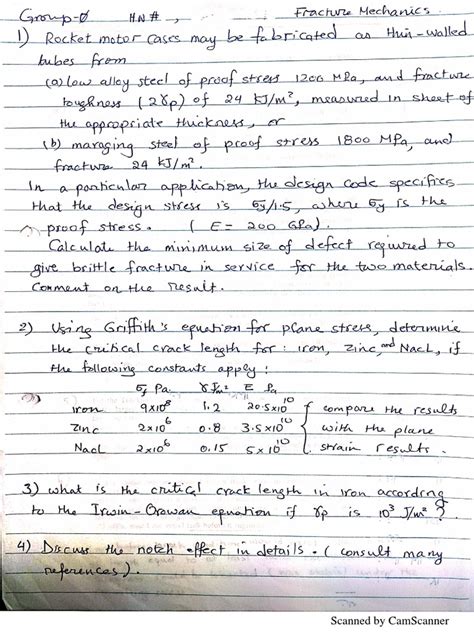 Group-Ø H N # , Fracture Mechanics.
1) Rocket motor cases may be fabricated as thin-walled
tubes from
(a) low alloy steel of proof stress 1200 MPa, and fracture
toughness (2γp) of 24 kJ/m², measured in sheet of
the appropriate thickness, or
(b) maraging steel of proof stress 1800 MPa, and
fracture 24 kJ/m².
In a particular application, the design code specifies
that the design stress is σy/1.5, where σy is the
proof stress. (E = 200 GPa).
Calculate the minimum size of defect required to
give brittle fracture in service for the two materials.
Comment on the result.
2) Using Griffith's equation for plane stress, determine
the critical crack length for: iron, Zinc, and NaCl, if
the following constants apply:
σf Pa. γ J/m² E Pa
iron 9x10⁸ 1.2 20.5x10¹⁰ compare the results
Zinc 2x10⁶ 0.8 3.5x10¹⁰ with the plane
NaCl 2x10⁶ 0.15 5x10¹⁰ strain results.
3) what is the critical crack length in iron according
to the Irwin-Orowan equation if γp is 10³ J/m²?
4) Discuss the notch effect in details. (consult many
references).
Scanned by CamScanner